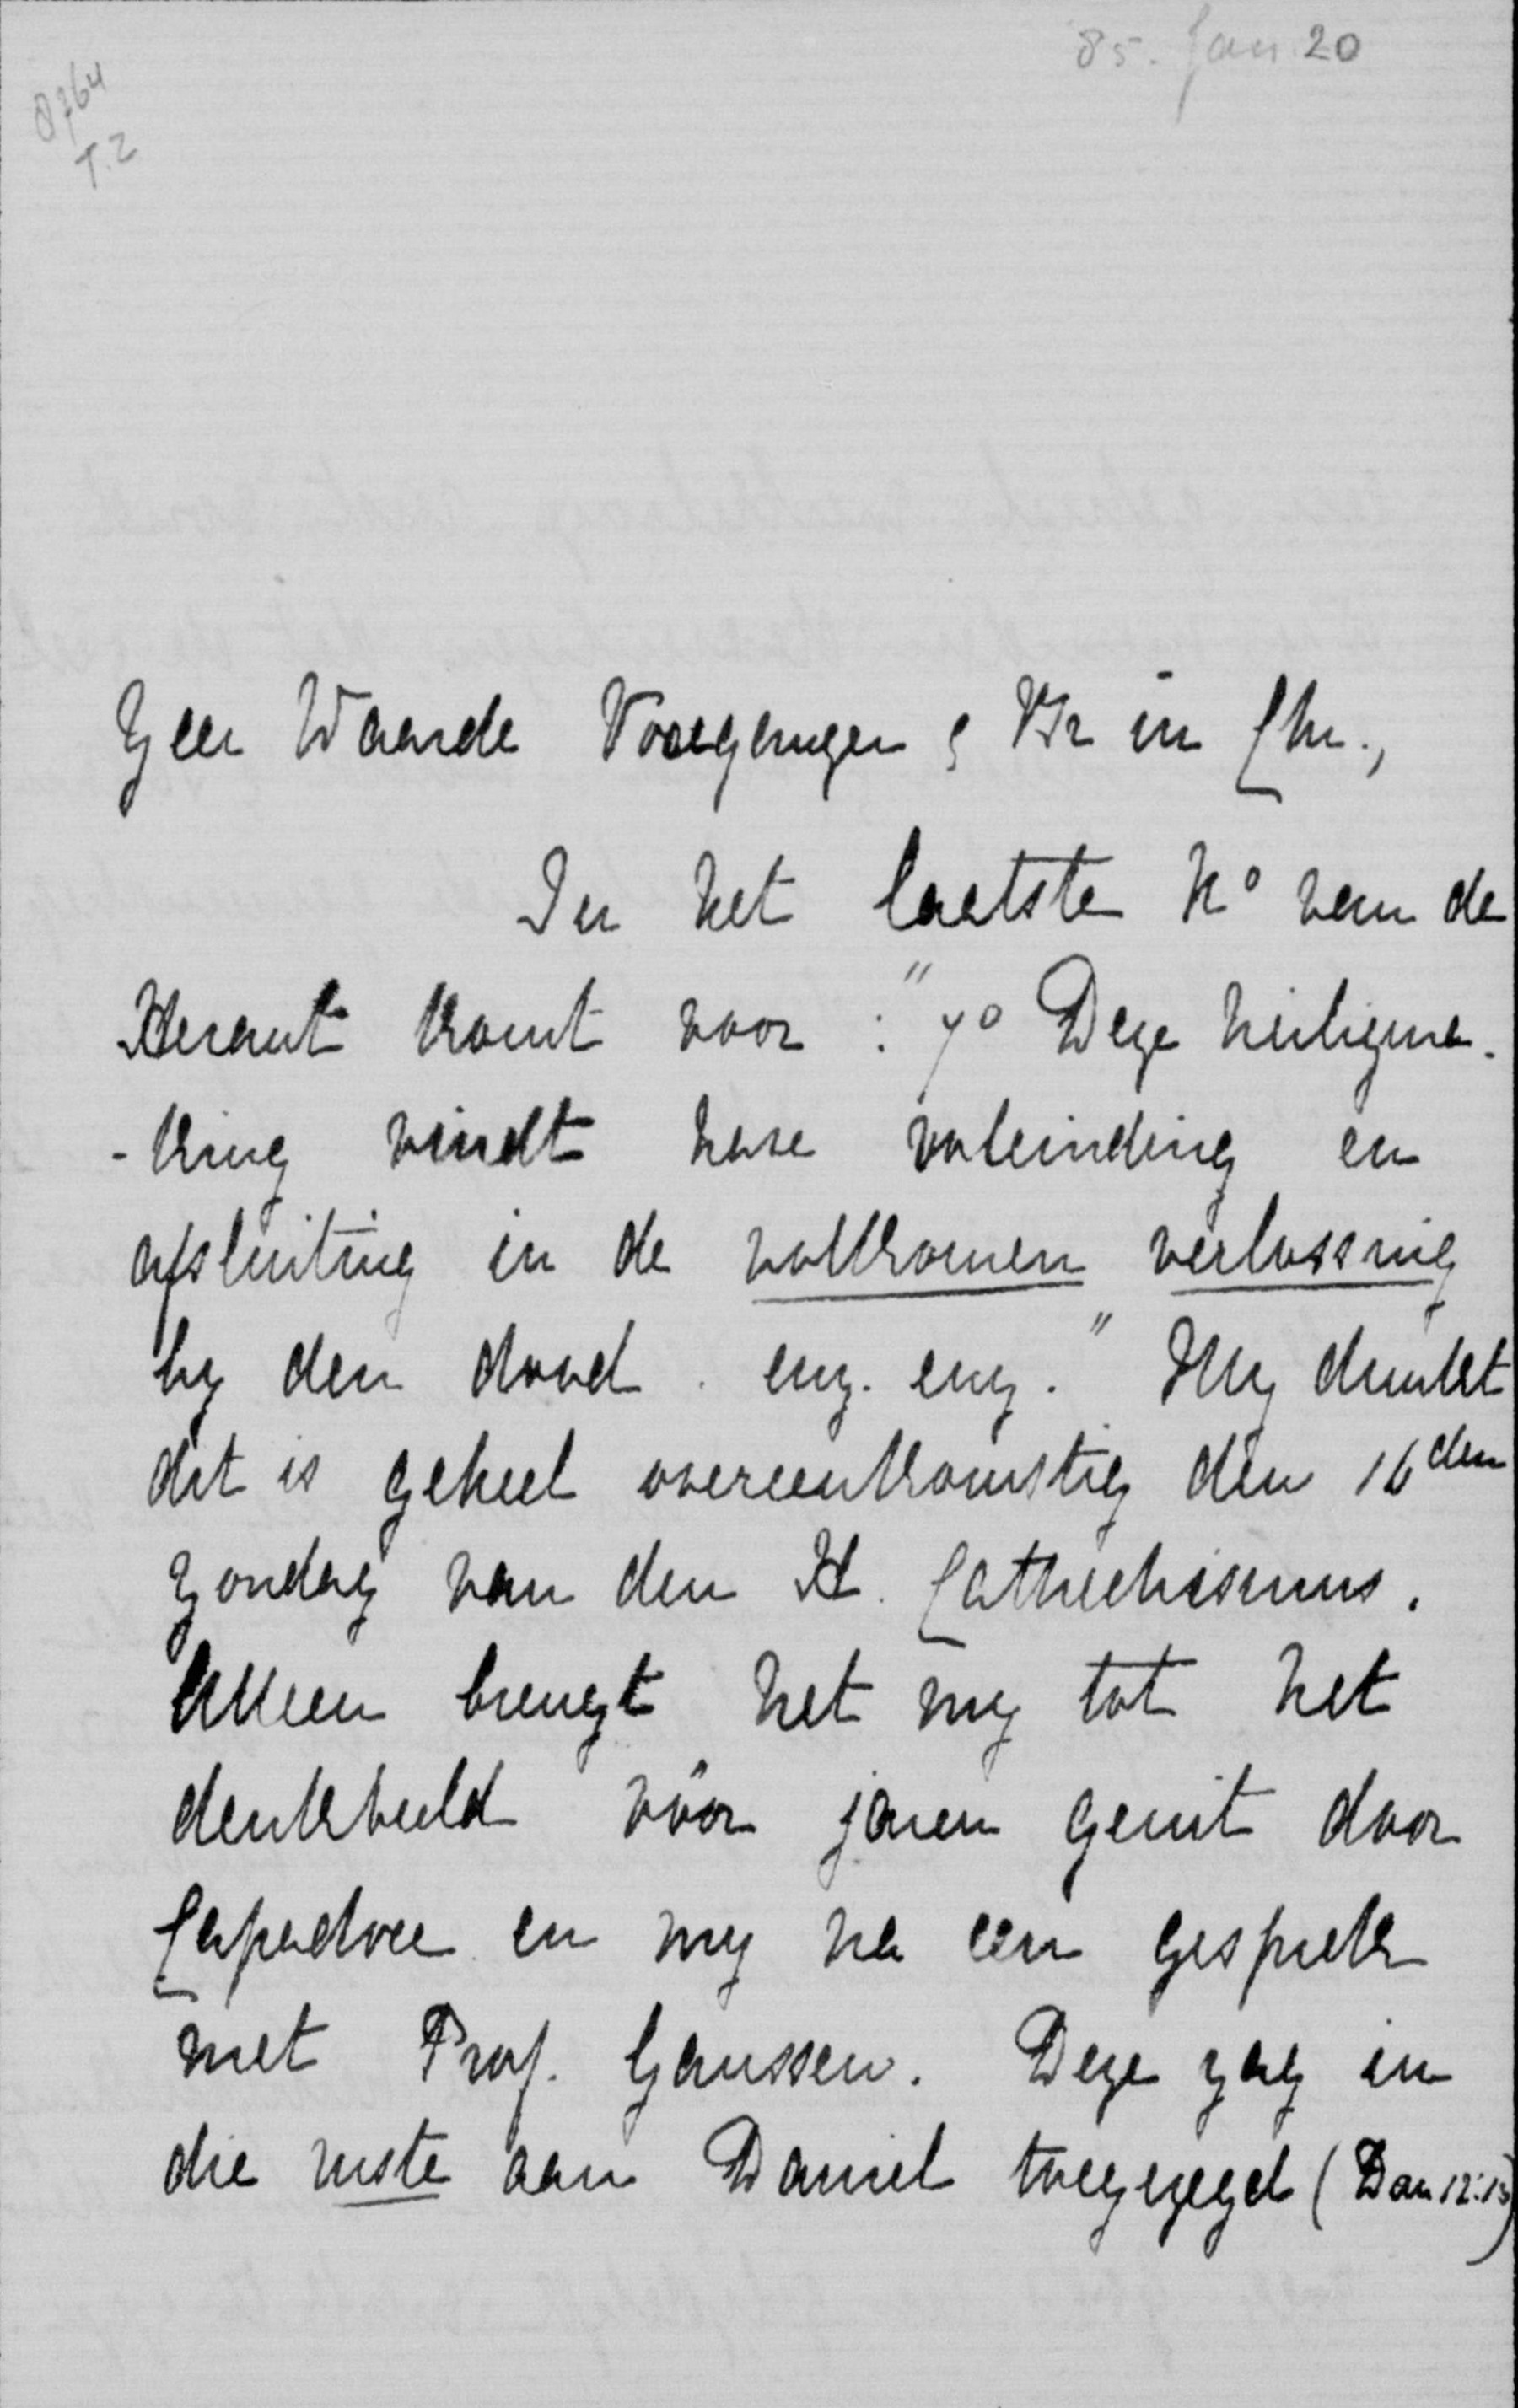 85. Jan 20
8764
T.2
Zeer Waarde Voorganger & Br in Chr.,
In het laatste No van de
Heraut komt voor : "7o Deze heiligma-
-king vindt hare voleinding en
afsluiting in de volkomen verlossing
by den dood . enz. enz." My dunkt
dit is geheel overeenkomstig den 16den
Zondag van den H. Cathechismus.
Alleen brengt het my tot het
denkbeeld vóór jaren geuit door
Capadose en my na een gesprek
met Prof. Gaussen. Deze zag in
die ruste aan Daniel toegezegd (Dan 12:13)